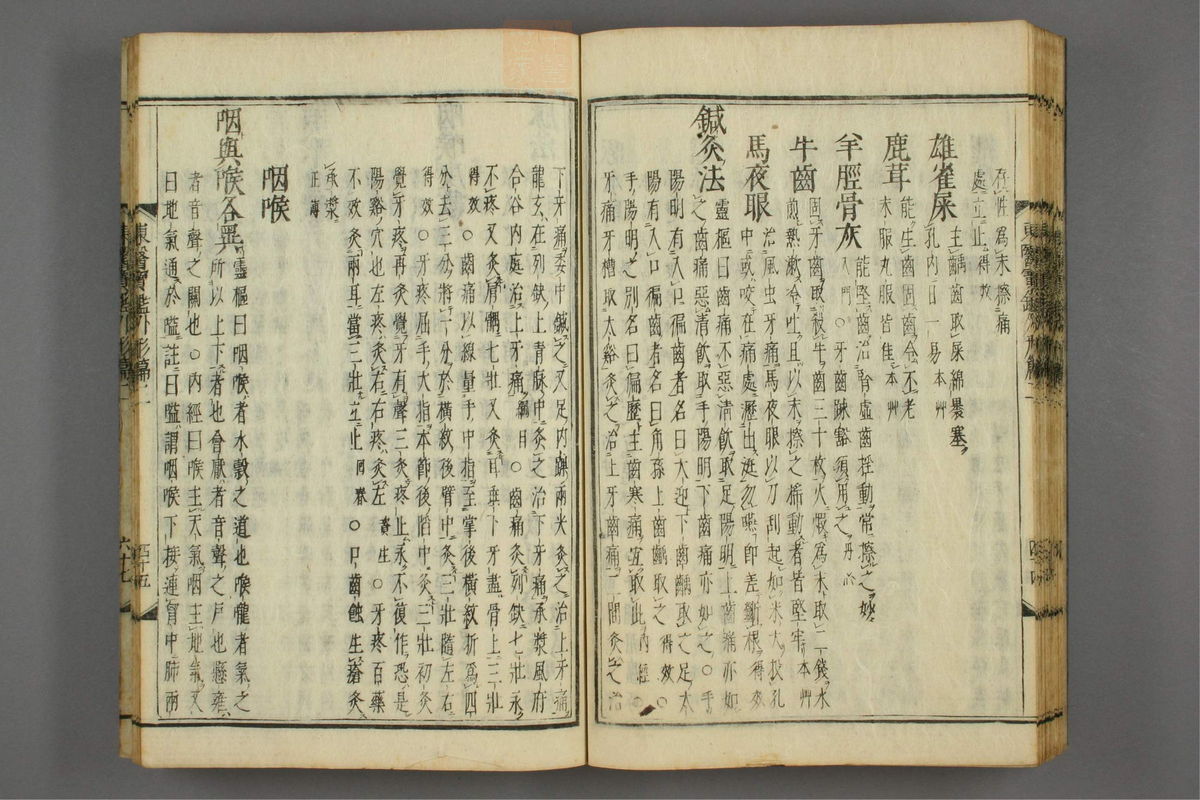 存性爲末擦痛
處立止得效
雄雀屎主齲齒取屎綿褁塞
孔內日一易本艸
鹿茸能生齒固齒令不老
末服丸服皆佳本艸
羊脛骨灰能堅齒治腎虛齒揺動常擦之妙
入門○牙齒踈豁須用之丹心
牛齒固牙齒取牛齒三十枚火煆爲末取二錢水
煎熱漱令吐且以末擦之揺動者皆堅牢本艸
馬夜眼治風虫牙痛馬夜眼以刀刮起如米大投孔
中或咬在痛處瀝出涎勿嚥卽差斷根得效
鍼灸法靈樞曰齒痛不惡淸飮取足陽明上齒痛亦如
之齒痛惡淸飮取手陽明下齒痛亦如之○手
陽明有入頄徧齒者名曰大迎下齒齲取之足太
陽有入頄徧齒者名曰角孫上齒齲取之得效○
手陽明之別名曰偏歷主齒寒痛宜取此內經○
牙痛牙槽取太谿灸之治上牙齒痛二間灸之治
下牙痛委中鍼之又足內踝兩尖灸之治上牙痛
龍玄在列缺上靑脉中灸之治下牙痛承漿風府
合谷內庭治上牙痛綱目○齒痛灸列缺七壯永
不疼又灸肩髃七壯又灸耳垂下牙盡骨上三壯
得效○齒痛以線量手中指至掌後橫紋折爲四
分去三分將一分於橫紋後臂中灸三壯隨左右
得效○牙疼屈手大指本節後陷中灸三壯初灸
覺牙疼再灸覺牙有聲三灸疼止永不復作恐是
陽谿穴也左疼灸右右疼灸左資生○牙疼百藥
不效灸兩耳當三壯立止回春○口齒蝕生瘡灸
承漿
咽喉
咽與喉各異靈樞曰咽喉者水穀之道也喉嚨者氣之
所以上下者也會厭者音聲之戶也懸雍
者音聲之關也○內經曰喉主天氣咽主地氣又
曰地氣通於嗌註曰嗌謂咽喉下接連胃中肺兩
東醫寶鑑外形篇二
四十五